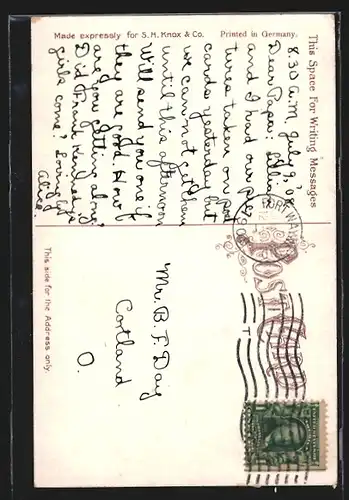 Made expressly for S. H. Knox & Co. Printed in Germany.
This Space For Writing Messages
8.30 A.M. July 9, '08
Dear Papa: Lillian
and I had our pic-
tures taken on post
cards yesterday but
we can not get them
until this afternoon
Will send you one if
they are good. How
are you getting along,
Did Frank Kennedy's
girls come? Lovingly
Alice.
POST CARD
Mr. B. F. Day
Cortland
O.
This side for the Address only.